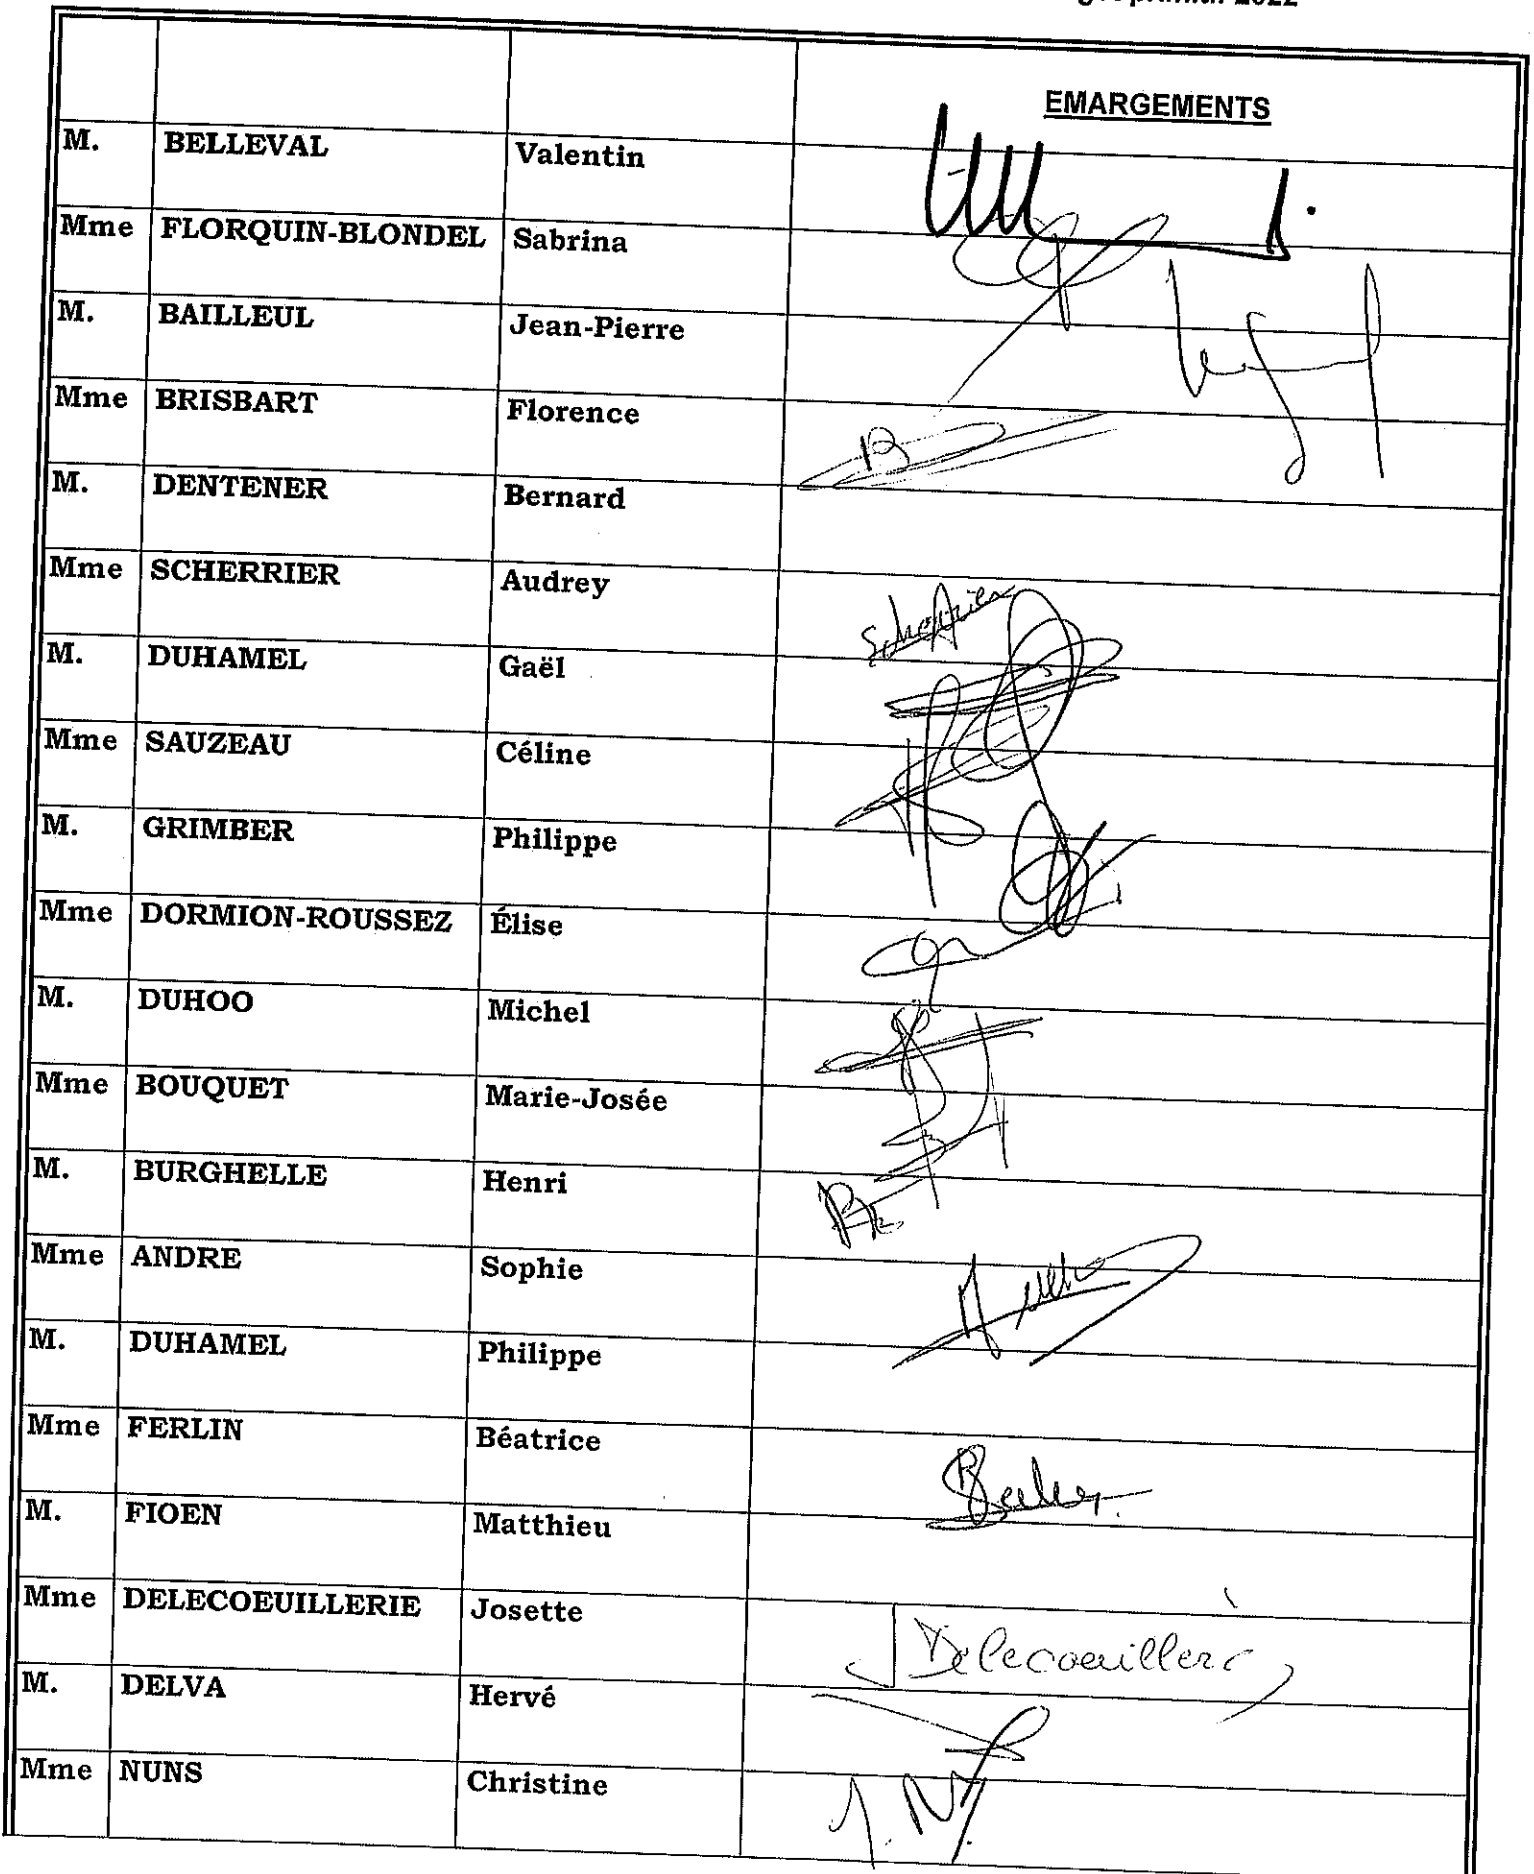 2022
EMARGEMENTS
M. BELLEVAL Valentin
Mme FLORQUIN-BLONDEL Sabrina
M. BAILLEUL Jean-Pierre
Mme BRISBART Florence
M. DENTENER Bernard
Mme SCHERRIER Audrey
Scherrier
M. DUHAMEL Gaël
Mme SAUZEAU Céline
M. GRIMBER Philippe
Mme DORMION-ROUSSEZ Élise
M. DUHOO Michel
Mme BOUQUET Marie-Josée
M. BURGHELLE Henri
Mme ANDRE Sophie
M. DUHAMEL Philippe
Mme FERLIN Béatrice
M. FIOEN Matthieu
Mme DELECOEUILLERIE Josette
Delecoeuillerie
M. DELVA Hervé
Mme NUNS Christine